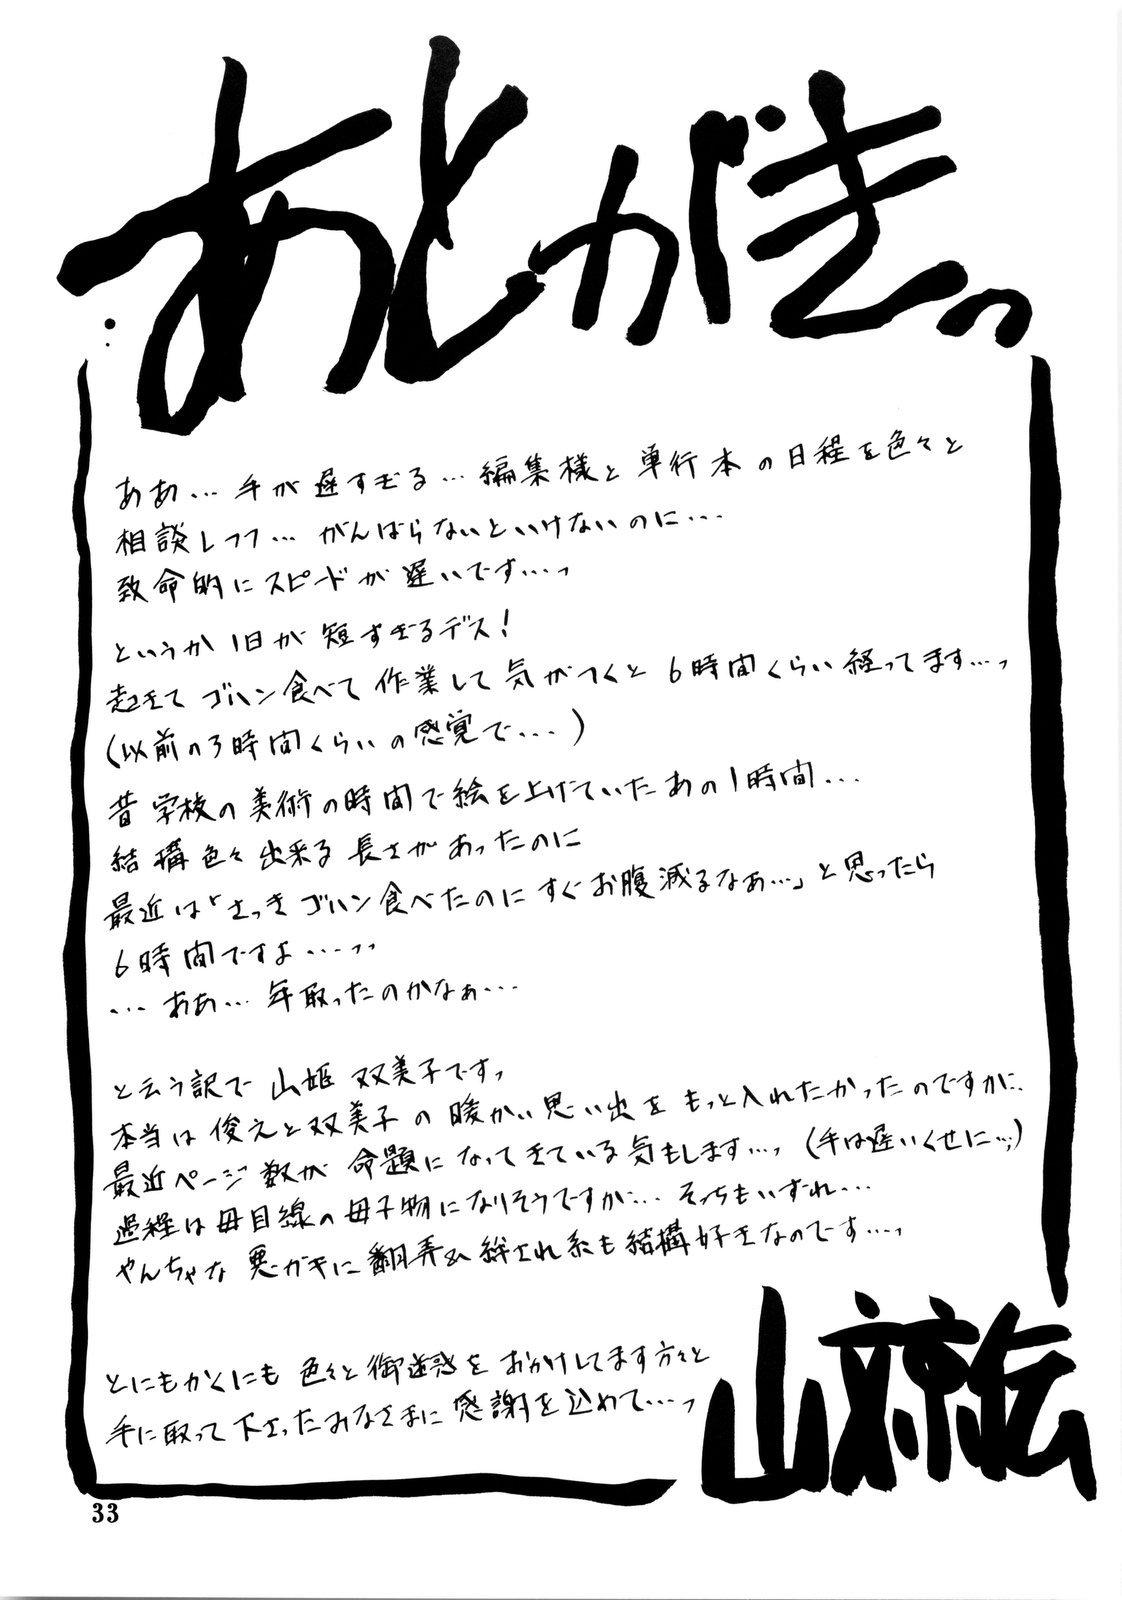 あとがきっ
ああ… 手が遅すぎる… 編集様と単行本の日程を色々と
相談しつつ… がんばらないといけないのに…
致命的にスピードが遅いです…っ
というか1日が短すぎるデス!
起きてゴハン食べて作業して気がつくと6時間くらい経ってます…っ
(以前の3時間くらいの感覚で…)
昔学校の美術の時間で絵を上げていたあの1時間…
結構色々出来る長さがあったのに
最近は「さっきゴハン食べたのにすぐお腹減るなぁ…」と思ったら
6時間ですよ…っっ
…ああ… 年取ったのかなぁ…
と云う訳で山姫 双美子ですっ
本当は俊之と双美子の暖かい思い出をもっと入れたかったのですが、
最近ページ数が命題になってきている気もします…っ(手は遅いくせに…;)
過程は母目線の母子物になりそうですが… そっちもいずれ…
やんちゃな悪ガキに翻弄&絆され系も結構好きなのです…っ
とにもかくにも色々と御迷惑をおかけしてます方々と
手に取って下さったみなさまに感謝を込めて…っ
山文京伝
33